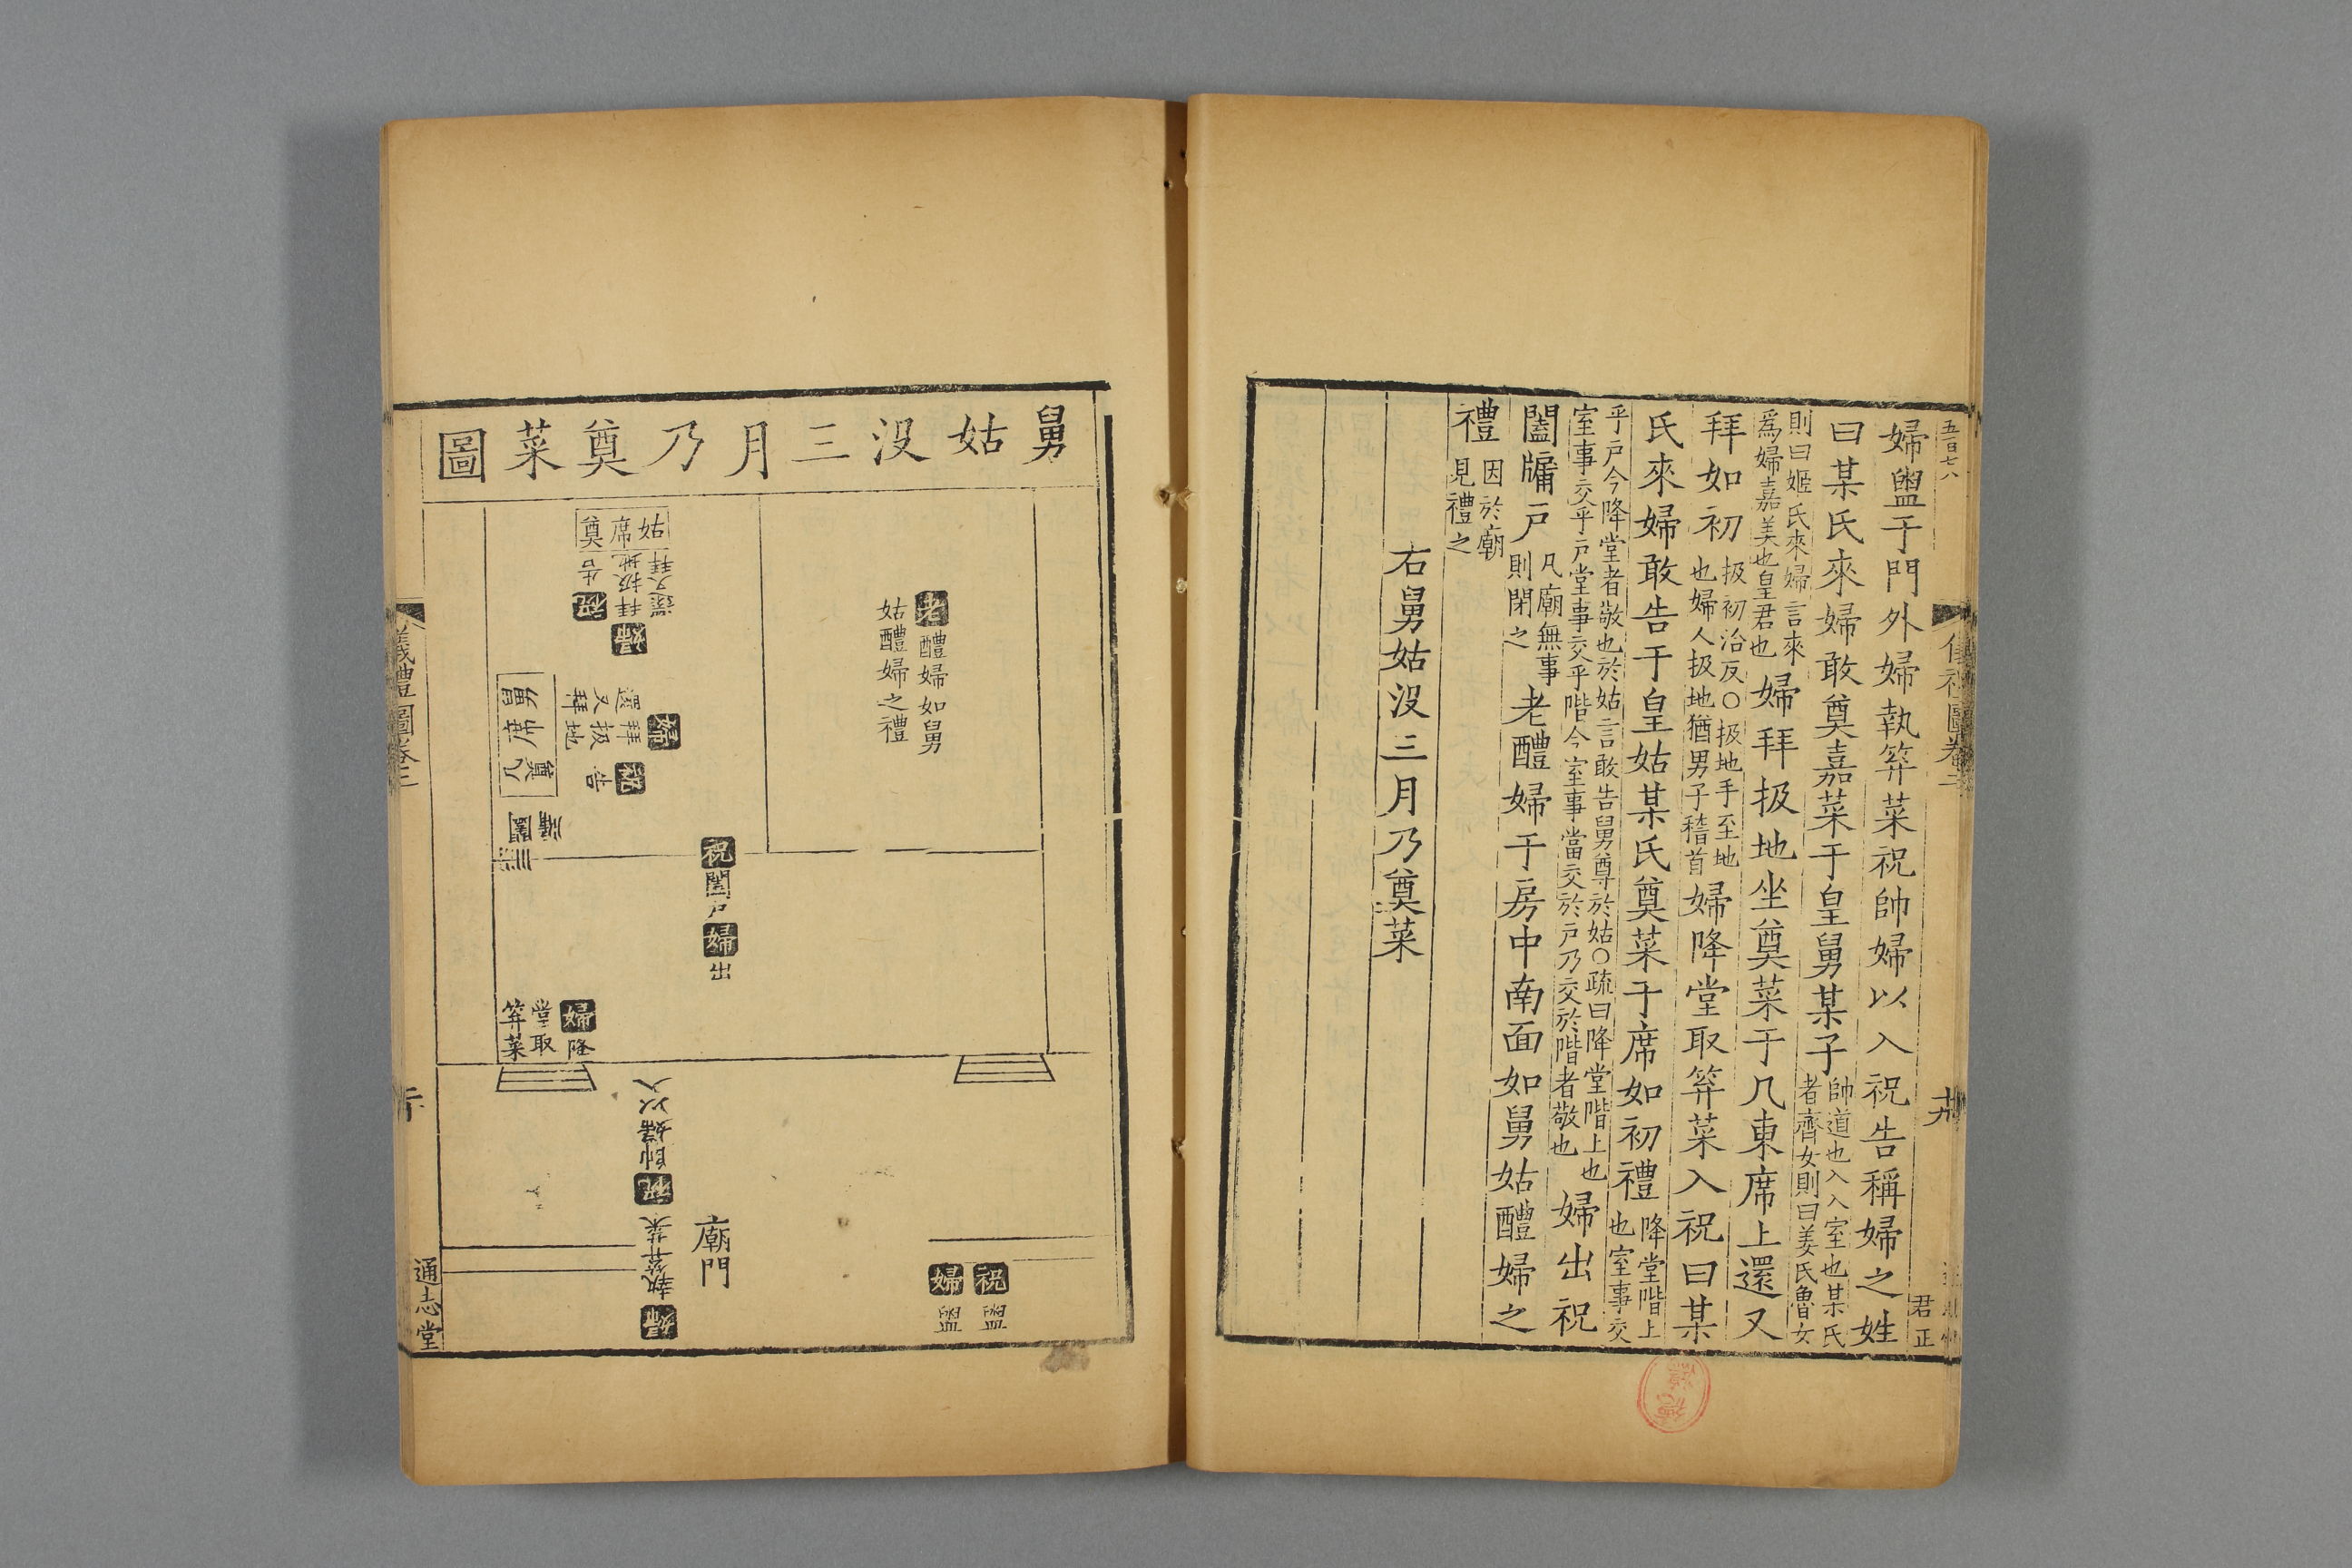 五百七八
婦盥于門外婦執笲菜祝帥婦以入祝告稱婦之姓
曰某氏來婦敢奠嘉菜于皇舅某子
帥道也入入室也某氏
者齊女則曰姜氏魯女
則曰姬氏來婦言來
爲婦嘉美也皇君也
婦拜扱地坐奠菜于几東席上還又
拜如初
扱初洽反〇扱地手至地
也婦人扱地猶男子稽首
婦降堂取笲菜入祝曰某
氏來婦敢告于皇姑某氏奠菜于席如初禮
降堂階上
也室事交
乎戶今降堂者敬也於姑言敢告舅尊於姑〇疏曰降堂階上也
室事交乎戶堂事交乎階今室事當交於戶乃交於階者敬也
婦出祝
闔牖戶
凡廟無事
則閉之
老醴婦于房中南面如舅姑醴婦之
禮
因於廟
見禮之
右舅姑沒三月乃奠菜
卷三
君正
舅姑沒三月乃奠菜圖
老醴婦如舅
姑醴婦之禮
姑席
奠
還又拜
婦拜扱地
祝告
舅席
奠
几
婦拜扱地
還又拜
祝告
闔牖
祝闔戶婦出
婦降
堂取
笲菜
祝帥婦以入
婦執笲菜
廟門
祝盥
婦盥
儀禮圖卷三
通志堂